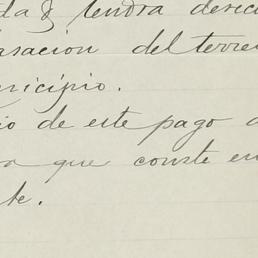 da y tendra derec
asacion del terre
nicipio.
io de este pago a
ra que conste en
te.